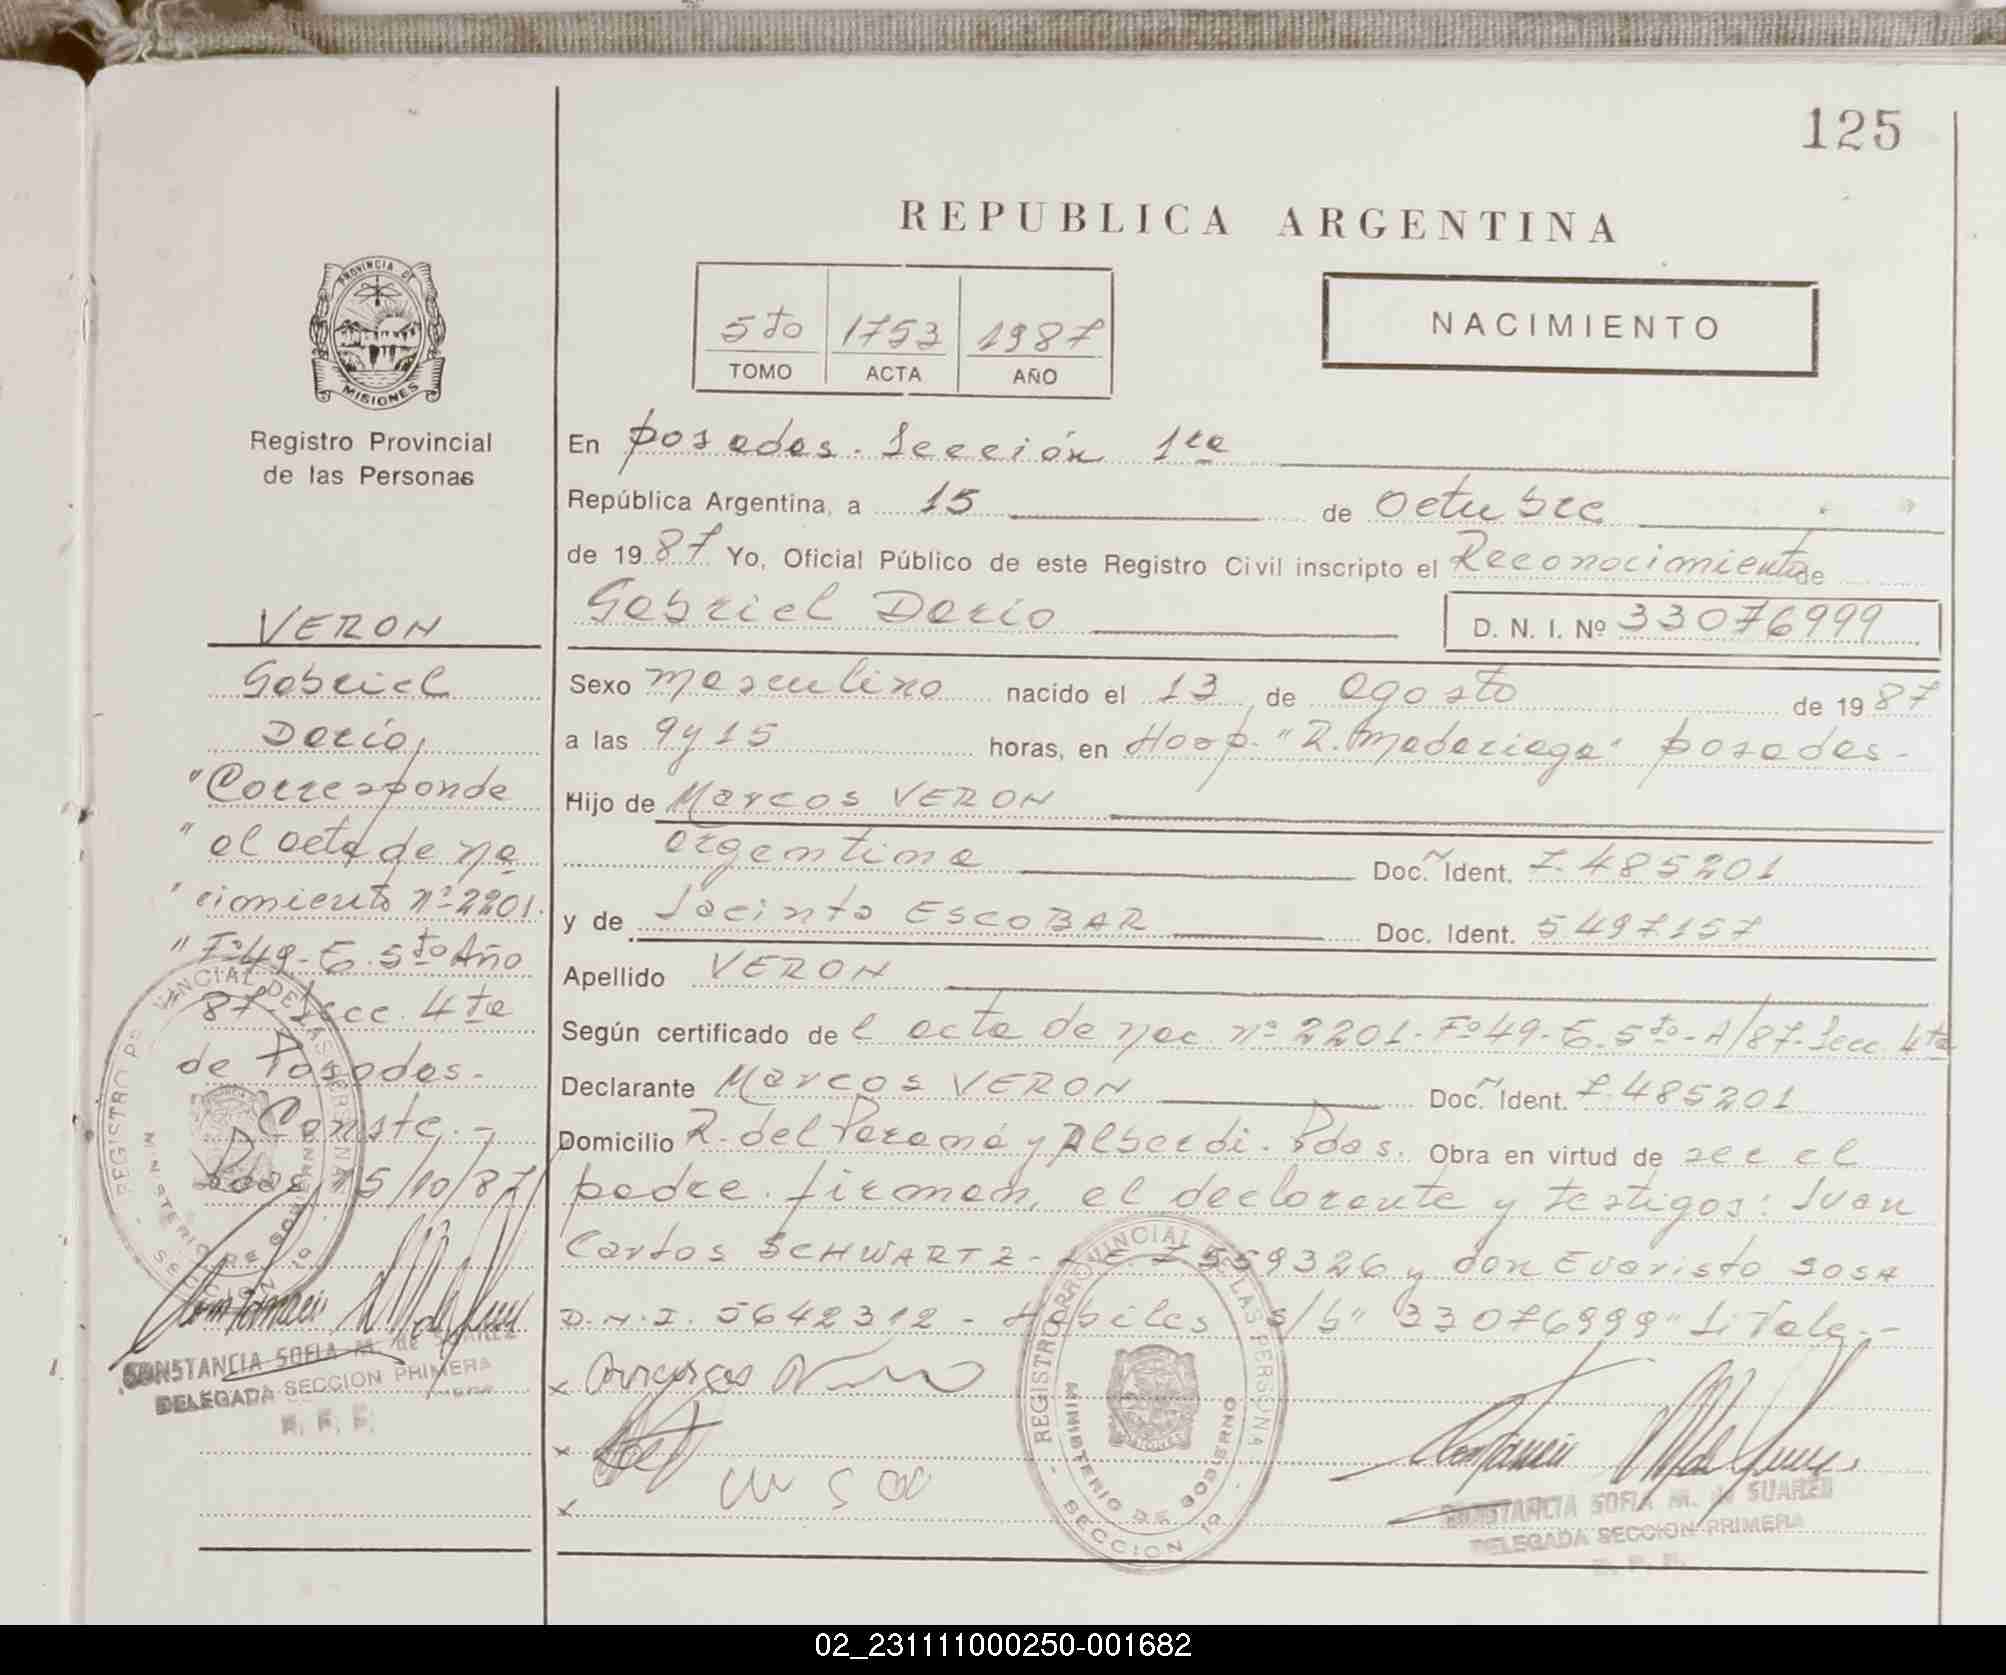 125
REPUBLICA ARGENTINA
5to 1753 1987
TOMO ACTA AÑO
NACIMIENTO
PROVINCIA DE
MISIONES
Registro Provincial
de las Personas
VERON
Gabriel
Dario
"Corresponde
"al acta de na
"cimiento nº 2201.
"Fº 49-T. 5to Año
87. Secc. 4ta
de Posadas.-
Conste.-
Pdas, 15/10/87
CONSTANCIA SOFIA M. de SUAREZ
DELEGADA SECCION PRIMERA
En Posadas. Sección 1ra
República Argentina, a 15 de Octubre
de 1987 Yo, Oficial Público de este Registro Civil inscripto el Reconocimiento de
Gabriel Dario D. N. I. Nº 33076999
Sexo masculino nacido el 13 de agosto de 1987
a las 9 y 15 horas, en Hosp. "R. Madariaga" posadas-
Hijo de Marcos VERON
argentina Doc. Ident. 7.485201
y de Jacinta ESCOBAR Doc. Ident. 5497157
Apellido VERON
Según certificado de l acta de nac. nº 2201-Fº 49-T. 5to-A/87-Secc. 4ta
Declarante Marcos VERON Doc. Ident. 7.485201
Domicilio R. del Paraná y Alberdi. Pdas. Obra en virtud de ser el
padre. firman, el declarante y testigos: Juan
Carlos SCHWARTZ- L.E. 7559326 y don Evaristo SOSA
D.N.I. 5642312 - Habiles s/b" 33076999" Si Vale.-
REGISTRO PROVINCIAL DE LAS PERSONAS
MINISTERIO DE GOBIERNO
SECCION 1º
CONSTANCIA SOFIA M. de SUAREZ
DELEGADA SECCION PRIMERA
02_231111000250-001682